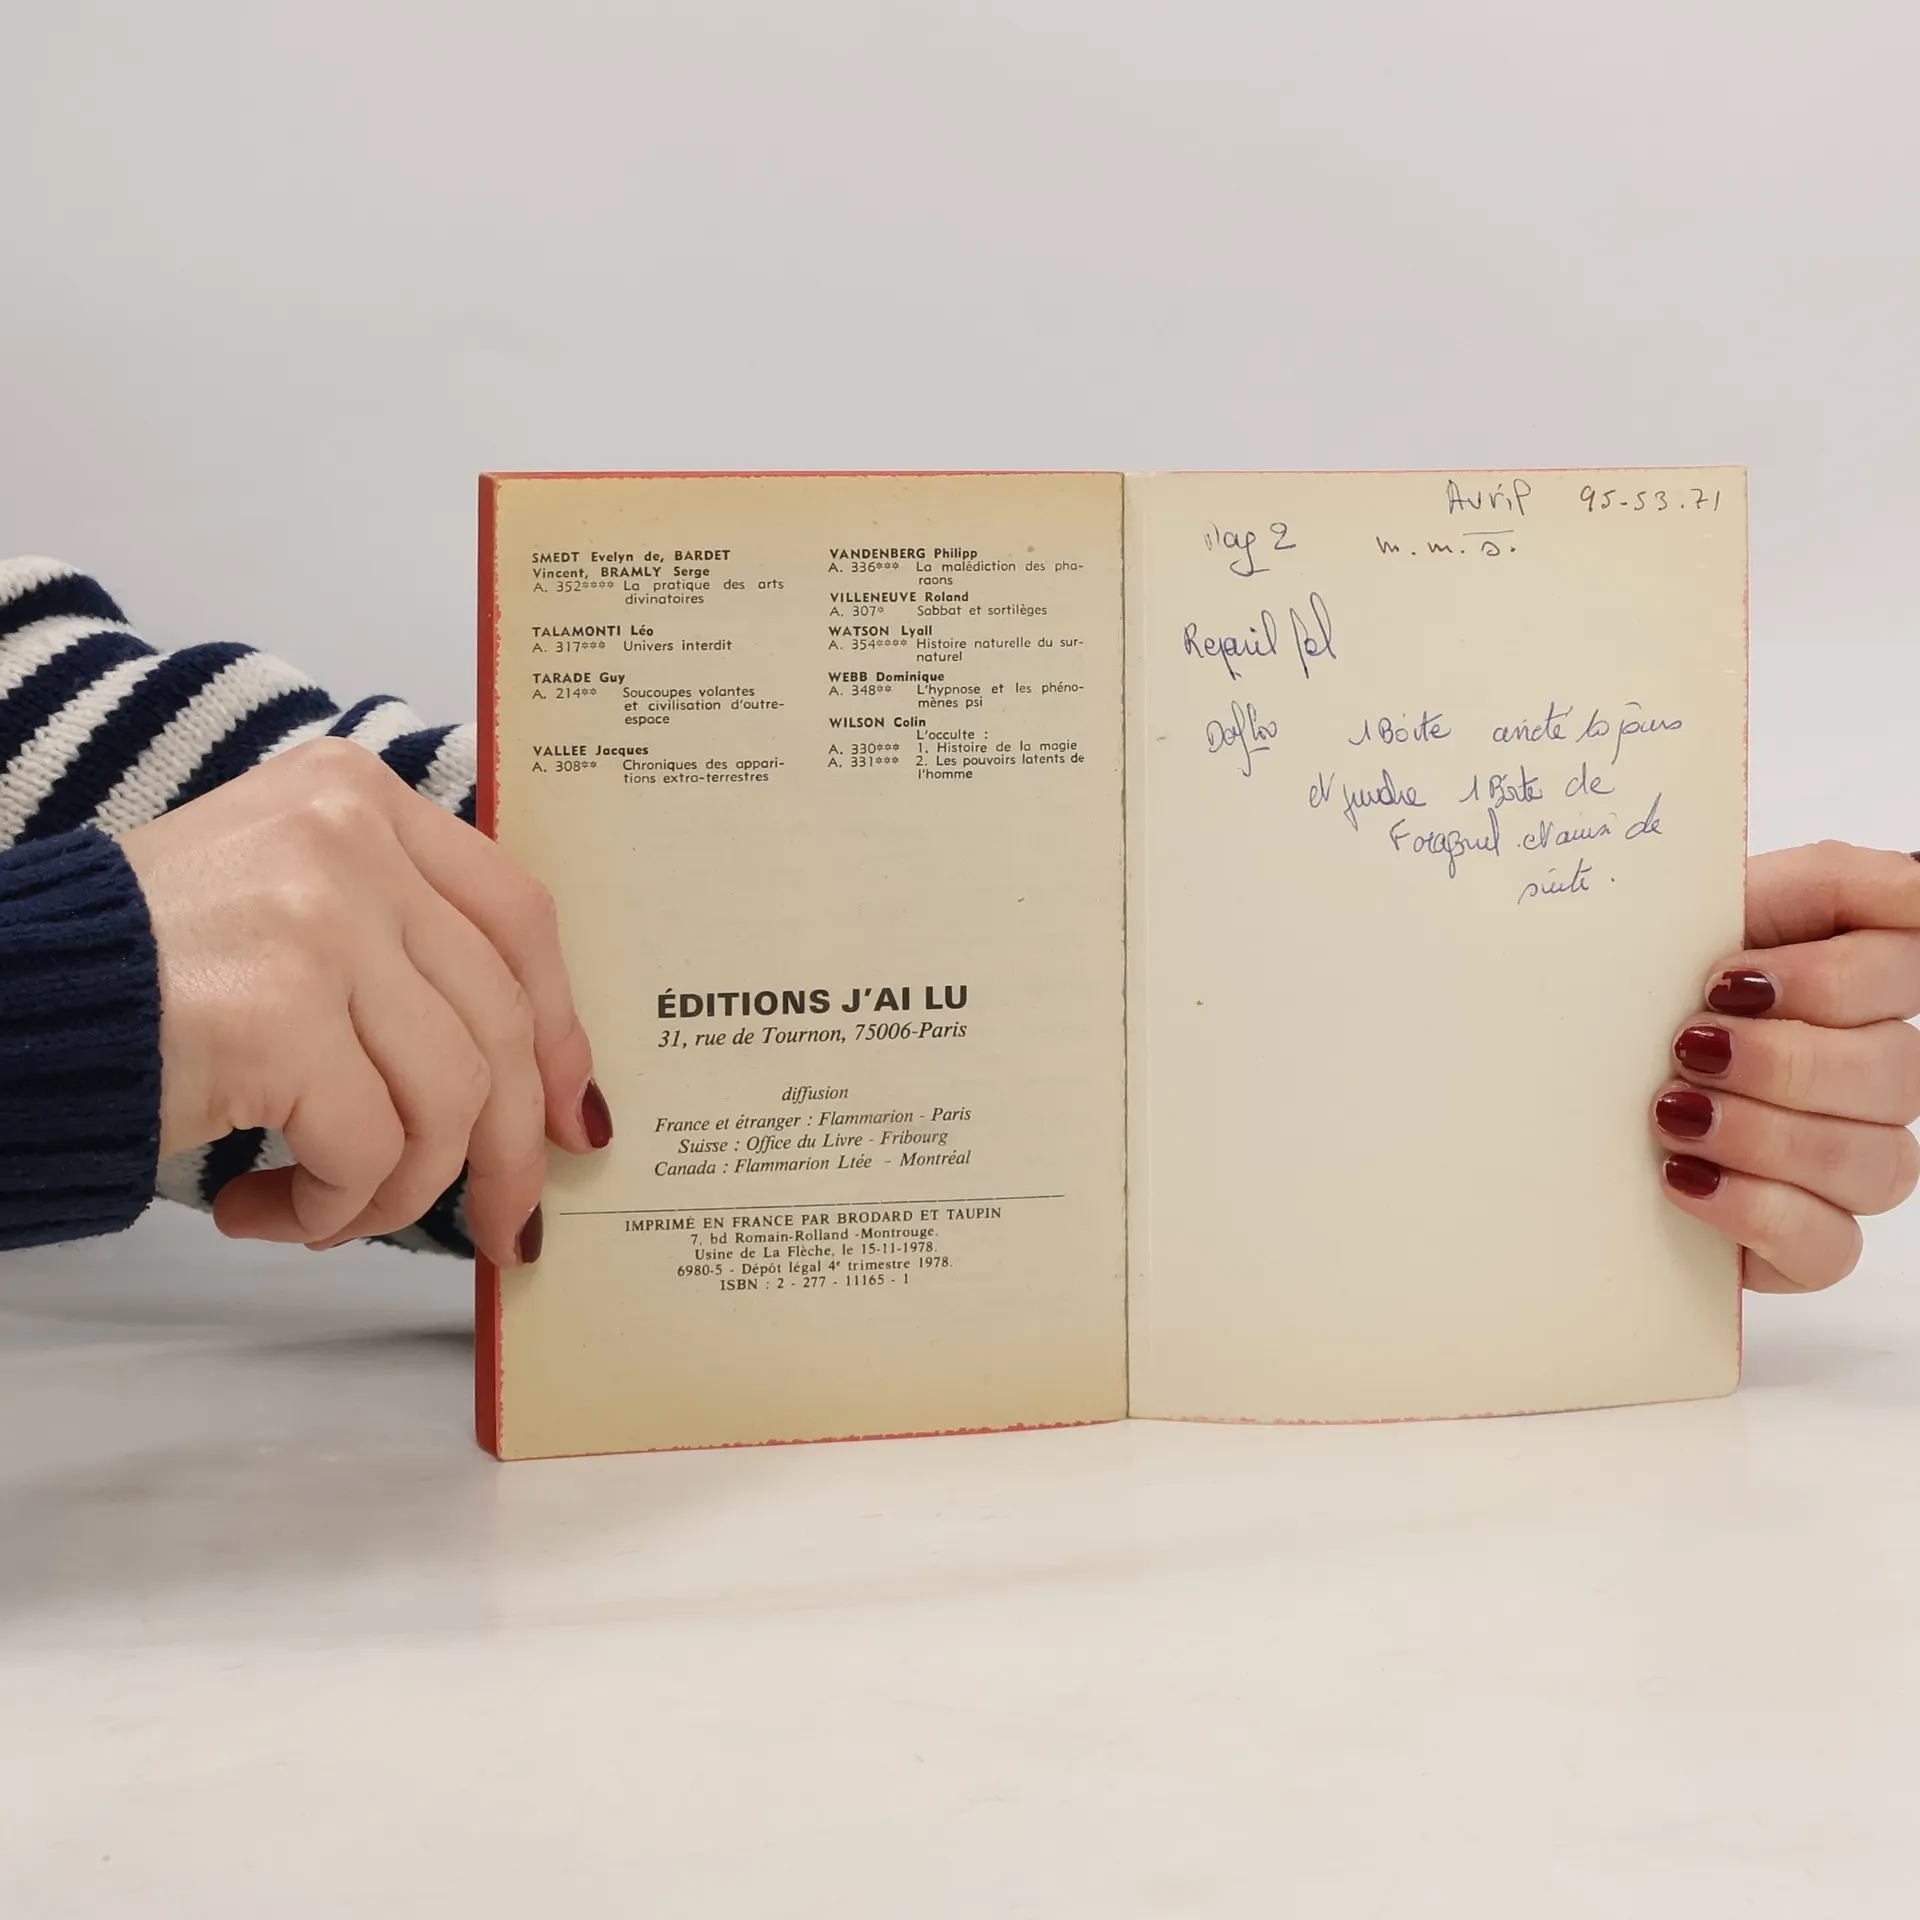 SMEDT Evelyn de, BARDET
Vincent, BRAMLY Serge
A. 352**** La pratique des arts
divinatoires
TALAMONTI Léo
A. 317*** Univers interdit
TARADE Guy
A. 214** Soucoupes volantes
et civilisation d'outre-
espace
VALLEE Jacques
A. 308** Chroniques des appari-
tions extra-terrestres
VANDENBERG Philipp
A. 336*** La malédiction des pha-
raons
VILLENEUVE Roland
A. 307* Sabbat et sortilèges
WATSON Lyall
A. 354**** Histoire naturelle du sur-
naturel
WEBB Dominique
A. 348** L'hypnose et les phéno-
mènes psi
WILSON Colin
L'occulte :
A. 330*** 1. Histoire de la magie
A. 331*** 2. Les pouvoirs latents de
l'homme
ÉDITIONS J'AI LU
31, rue de Tournon, 75006-Paris
diffusion
France et étranger : Flammarion - Paris
Suisse : Office du Livre - Fribourg
Canada : Flammarion Ltée - Montréal
IMPRIMÉ EN FRANCE PAR BRODARD ET TAUPIN
7, bd Romain-Rolland -Montrouge.
Usine de La Flèche, le 15-11-1978.
6980-5 - Dépôt légal 4e trimestre 1978.
ISBN : 2 - 277 - 11165 - 1
Avril 95-53.71
Mag 2 m.m.s.
1 Boite 10 jours
1 Boite de
et ainsi de
suite.